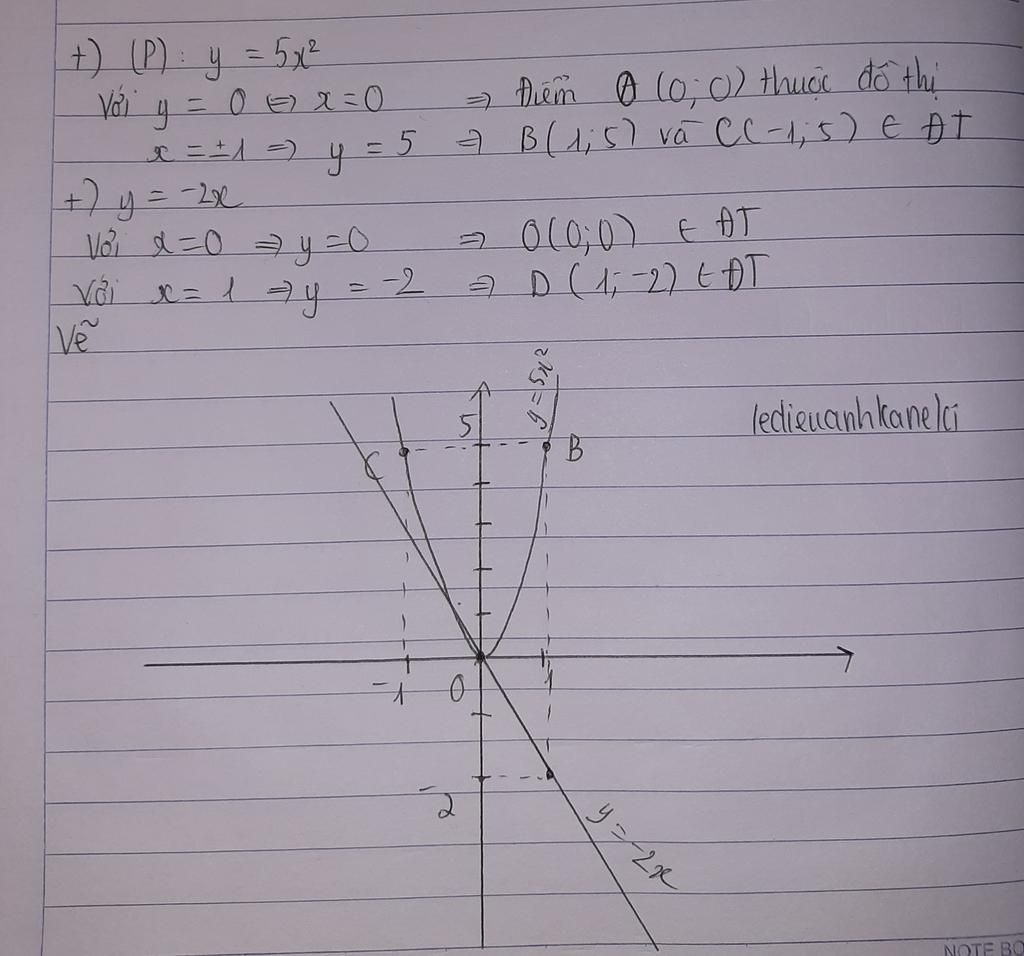 +) (P): y = 5x²
Với y = 0 ⇔ x = 0 ⇒ Điểm O (0; 0) thuộc đồ thị
x = ±1 ⇒ y = 5 ⇒ B(1; 5) và C(-1; 5) ∈ ĐT
+) y = -2x
Với x = 0 ⇒ y = 0 ⇒ O(0; 0) ∈ ĐT
Với x = 1 ⇒ y = -2 ⇒ D (1; -2) ∈ ĐT
Vẽ
y = 5x²
5
ledieuanhkanelci
C
B
-1
0
1
-2
y = -2x
NOTE BO